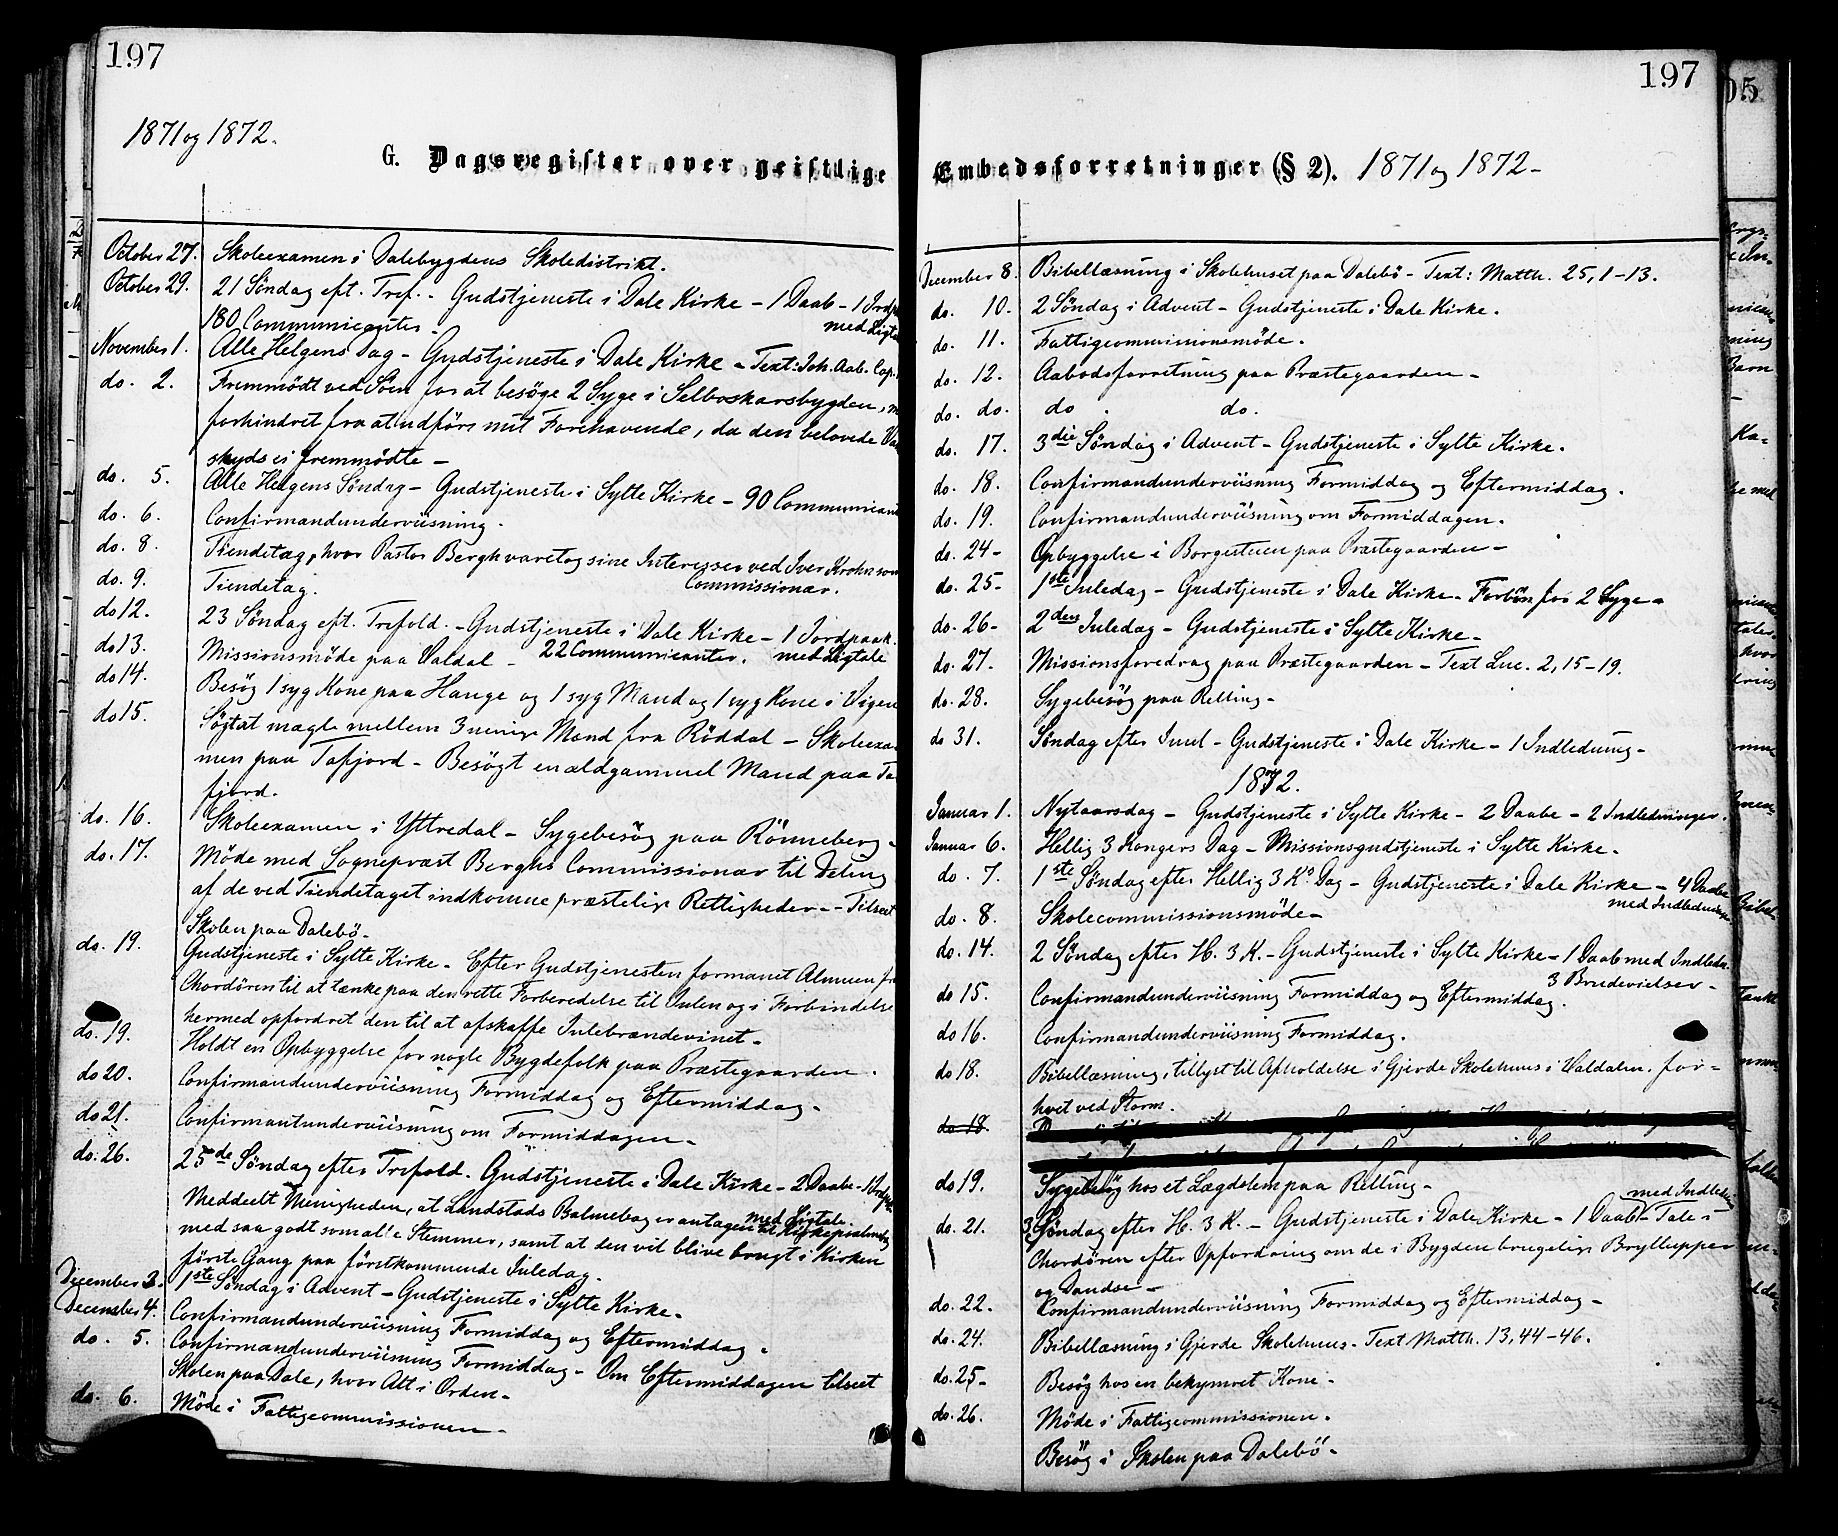 197
1871 og 1872.
G. Dagsregister over geistlige
October 27. Skoleexamen i Dalebygdens Skoledistrikt.
October 29. 21 Søndag eft. Tref. - Gudstjeneste i Dale Kirke - 1 Daab - 1 Jordp
180 Communicanter - med Ligta
November 1. Alle Helgens Dag - Gudstjeneste i Dale Kirke - Text: Joh. Aab. Cap.
do. 2. Fremmødt ved Søen for at besøge 2 Syge i Selboskarsbygden, m
forhindret fra at udføre mit Forehavende, da den belovede
skyds ei fremmødte -
do. 5. Alle Helgens Søndag - Gudstjeneste i Sylte Kirke - 90 Communicant
do. 6. Confirmandunderviisning.
do. 8. Tiendetag, hvor Pastor Bergh varetog sine Interesser ved Iver Krohn som
Commissionær.
do. 9. Tiendetag.
do 12. 23 Søndag eft. Trefold. - Gudstjeneste i Dale Kirke - 1 Jordpaak.
22 Communicanter. med Ligtale
do 13. Missionsmøde paa Valdal -
do 14. Besøg 1 syg Kone paa Hauge og 1 syg Mand og 1 syg Kone i Vigen
do 15. Søgt at mægle mellem 3 uenige Mænd fra Røddal - Skoleexa-
men paa Tafjord - Besøgt en ældgammel Mand paa Ta-
fjord.
do. 16. Skoleexamen i Yttredal - Sygebesøg paa Rønneberg -
do. 17. Møde med Sognepræst Berghs Commissionær til Deling
af de ved Tiendetaget indkomne præstelige Rettigheder - - Tilseet
Skolen paa Dalebø -
do. 19. Gudstjeneste i Sylte Kirke - Efter Gudstjenesten formanet Almuen fr
Chordøren til at tænke paa den rette Forberedelse til Julen og i Forbindelse
hermed opfordret den til at afskaffe Julebrændevinet -
do. 19. Holdt en Opbyggelse for nogle Bygdefolk paa Præstegaarden.
do 20. Confirmandunderviisning Formiddag og Eftermiddag -
do 21. Confirmantunderviisning om Formiddagen -
do. 26. 25de Søndag efter Trefold. Gudstjeneste i Dale Kirke - 2 Daabe - 1 Jordp
med Ligtale.
Meddeelt Menigheden, at Landstads Salmebog er antagen til Kirkepsalmebog
med saa godt som alle Stemmer, samt at den vil blive brugt i Kirken
første Gang paa førstkommende Juledag.
December 3. 1ste Søndag i Advent - Gudstjeneste i Sylte Kirke -
December 4. Confirmandunderviisning Formiddag og Eftermiddag -
do. 5. Confirmandunderviisning Formiddag - Om Eftermiddagen tilseet
Skolen paa Dale, hvor Alt i Orden -
do. 6. Møde i Fattigcommissionen -
197
Embedsforretninger (§ 2). 1871 og 1872 -
December 8. Bibellæsning i Skolehuset paa Dalebø - Text: Matth. 25, 1-13.
do. 10. 2 Søndag i Advent - Gudstjeneste i Dale Kirke.
do. 11. Fattigcommissionsmøde.
do. 12. Aabodsforretning paa Præstegaarden -
do. do. do. do.
do. 17. 3die Søndag i Advent - Gudstjeneste i Sylte Kirke.
do. 18. Confirmandunderviisning Formiddag og Eftermiddag.
do. 19. Confirmandunderviisning om Formiddagen.
do. 24 - Opbyggelse i Borgestuen paa Præstegaarden -
do. 25 - 1ste Juledag - Gudstjeneste i Dale Kirke - Forbøn for 2 Syge -
do. 26 - 2den Juledag - Gudstjeneste i Sylte Kirke -
do. 27. Missionsforedrag paa Præstegaarden - Text Luc. 2, 15-19.
do. 28. Sygebesøg paa Relling -
do 31. Søndag efter Juul - Gudstjeneste i Dale Kirke - 1 Indledning -
1872.
Januar 1. Nytaarsdag - Gudstjeneste i Sylte Kirke - 2 Daabe - 2 Indledninger.
Januar 6. Hellig 3 Kongers Dag - Missionsgudstjeneste i Sylte Kirke -
do. 7. 1ste Søndag efter Hellig 3 K's Dag - Gudstjeneste i Dale Kirke - 4 Daabe
med Indledning
do. 8. Skolecommissionsmøde -
do. 14. 2 Søndag efter H. 3 K. - Gudstjeneste i Sylte Kirke - 1 Daab med Indledn.
3 Brudevielser -
do 15. Confirmandunderviisning Formiddag og Eftermiddag.
do 16. Confirmandunderviisning Formiddag.
do 18. Bibellæsning, tillyst til Afholdelse i Gjerde Skolehuus i Valdalen, for-
hvet ved Storm.
do 18.
do 19. Sygebesøg hos et Lægdslem paa Relling -
med Indledn
do. 21. 3 Søndag efter H. 3 K. - Gudstjeneste i Dale Kirke - 1 Daab - Tale i
Chordøren efter Opfordring om de i Bygden brugelige Brylluper
og Dandse -
do. 22. Confirmandunderviisning Formiddag og Eftermiddag -
do. 24. Bibellæsning i Gjerde Skolehuus - Text Matth. 13, 44-46.
do. 25 - Besøg hos en bekymret Kone -
do. 26. Møde i Fattigcommissionen.
Besøg i Skolen paa Dalebø -
05